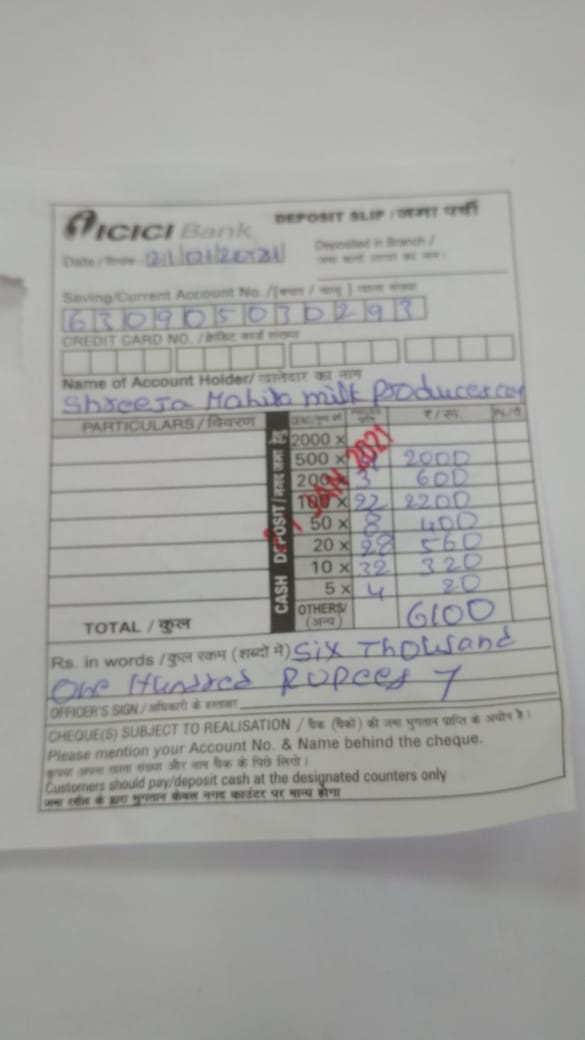 ICICI Bank DEPOSIT SLIP / जमा पर्ची
Date / दिनांक 21/01/2021 Deposited in Branch /
Saving/Current Account No. / [बचत / चालू] खाता संख्या
630905030293
CREDIT CARD NO. / क्रेडिट कार्ड संख्या
Name of Account Holder/ खातेदार का नाम
Shreeja Mahila milk Producer com
PARTICULARS / विवरण ₹/रु. Ps./पै.
CASH DEPOSIT / नकद जमा हेतु
2000 x
500 x 4 2000
200 x 3 600
100 x 22 2200
50 x 8 400
20 x 28 560
10 x 32 320
5 x 4 20
JAN 2021
OTHERS/ (अन्य)
TOTAL / कुल 6100
Rs. in words / कुल रकम (शब्दों में) Six Thousand
One Hundred Rupees 7
OFFICER'S SIGN./ अधिकारी के हस्ताक्षर
CHEQUE(S) SUBJECT TO REALISATION / चैक (चैकों) की जमा भुगतान प्राप्ति के अधीन है।
Please mention your Account No. & Name behind the cheque.
कृपया अपना खाता संख्या और नाम चैक के पिछे लिखें।
Customers should pay/deposit cash at the designated counters only
जमा रसीद के द्वारा भुगतान केवल नगद काउंटर पर मान्य होगा